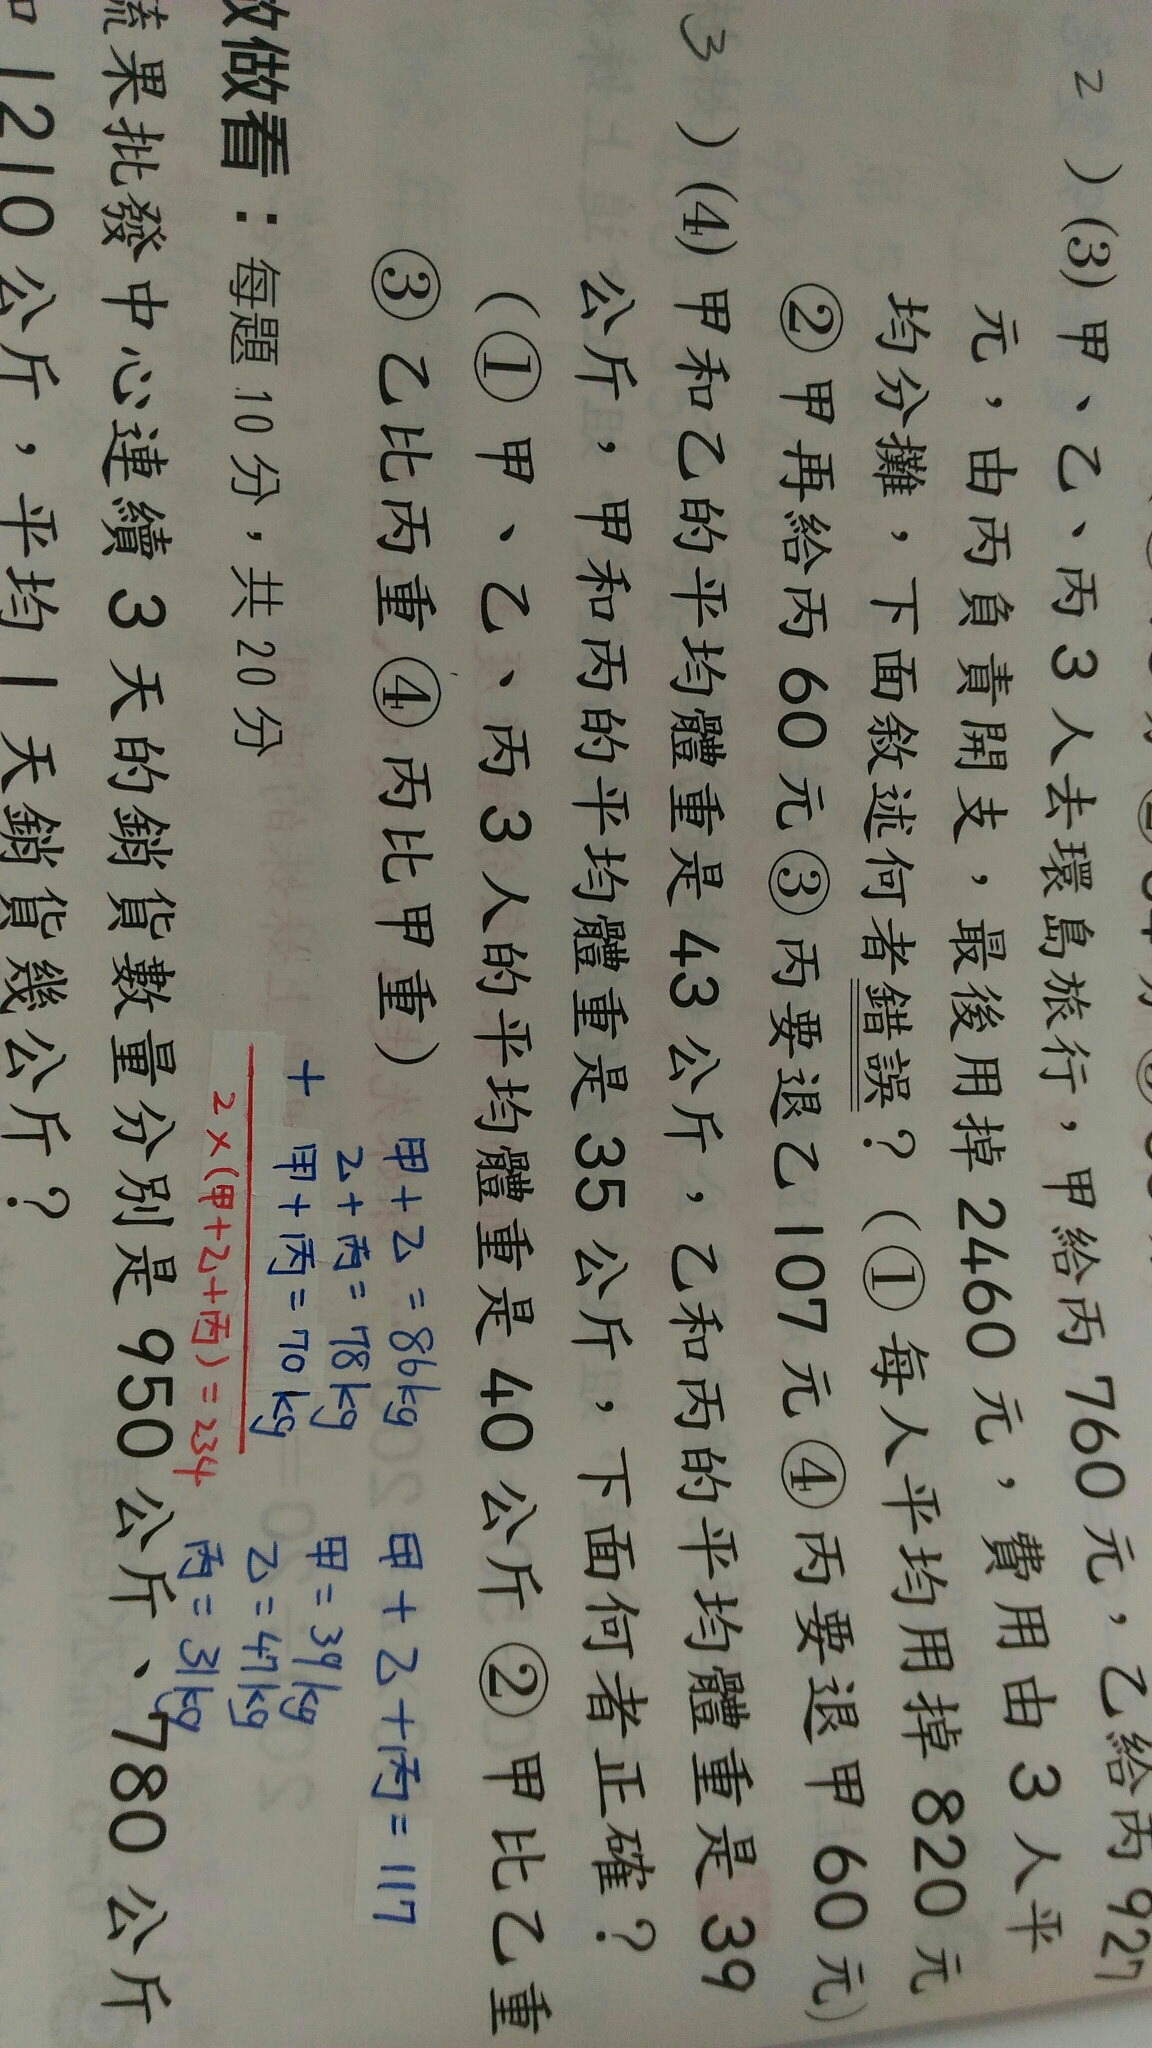 2 ) (3) 甲、乙、丙 3 人去環島旅行，甲給丙 760 元，乙給丙 927
元，由丙負責開支，最後用掉 2460 元，費用由 3 人平
均分攤，下面敘述何者錯誤？(① 每人平均用掉 820 元
② 甲再給丙 60 元 ③ 丙要退乙 107 元 ④ 丙要退甲 60 元)
3 ) (4) 甲和乙的平均體重是 43 公斤，乙和丙的平均體重是 39
公斤，甲和丙的平均體重是 35 公斤，下面何者正確？
(① 甲、乙、丙 3 人的平均體重是 40 公斤 ② 甲比乙重
③ 乙比丙重 ④ 丙比甲重)
甲+乙=86kg
乙+丙=78kg
+ 甲+丙=70kg
2×(甲+乙+丙)=234
甲+乙+丙=117
甲=39kg
乙=47kg
丙=31kg
做看：每題 10 分，共 20 分
果批發中心連續 3 天的銷貨數量分別是 950 公斤、780 公斤
1210 公斤，平均 1 天銷貨幾公斤？